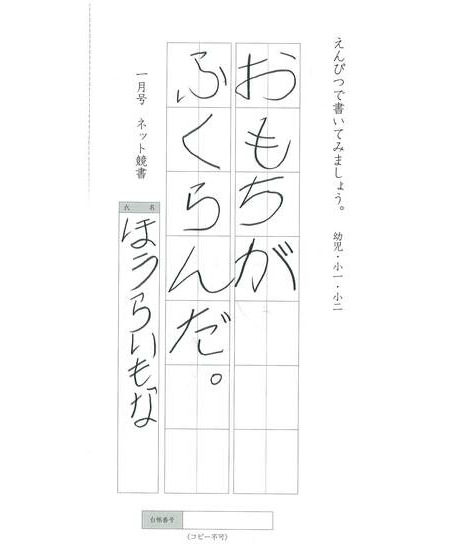 えんぴつで書いてみましょう。 幼児・小一・小二
おもちが
ふくらんだ。
一月号 ネット競書
氏名
ほうらいもな
台帳番号
(コピー不可)